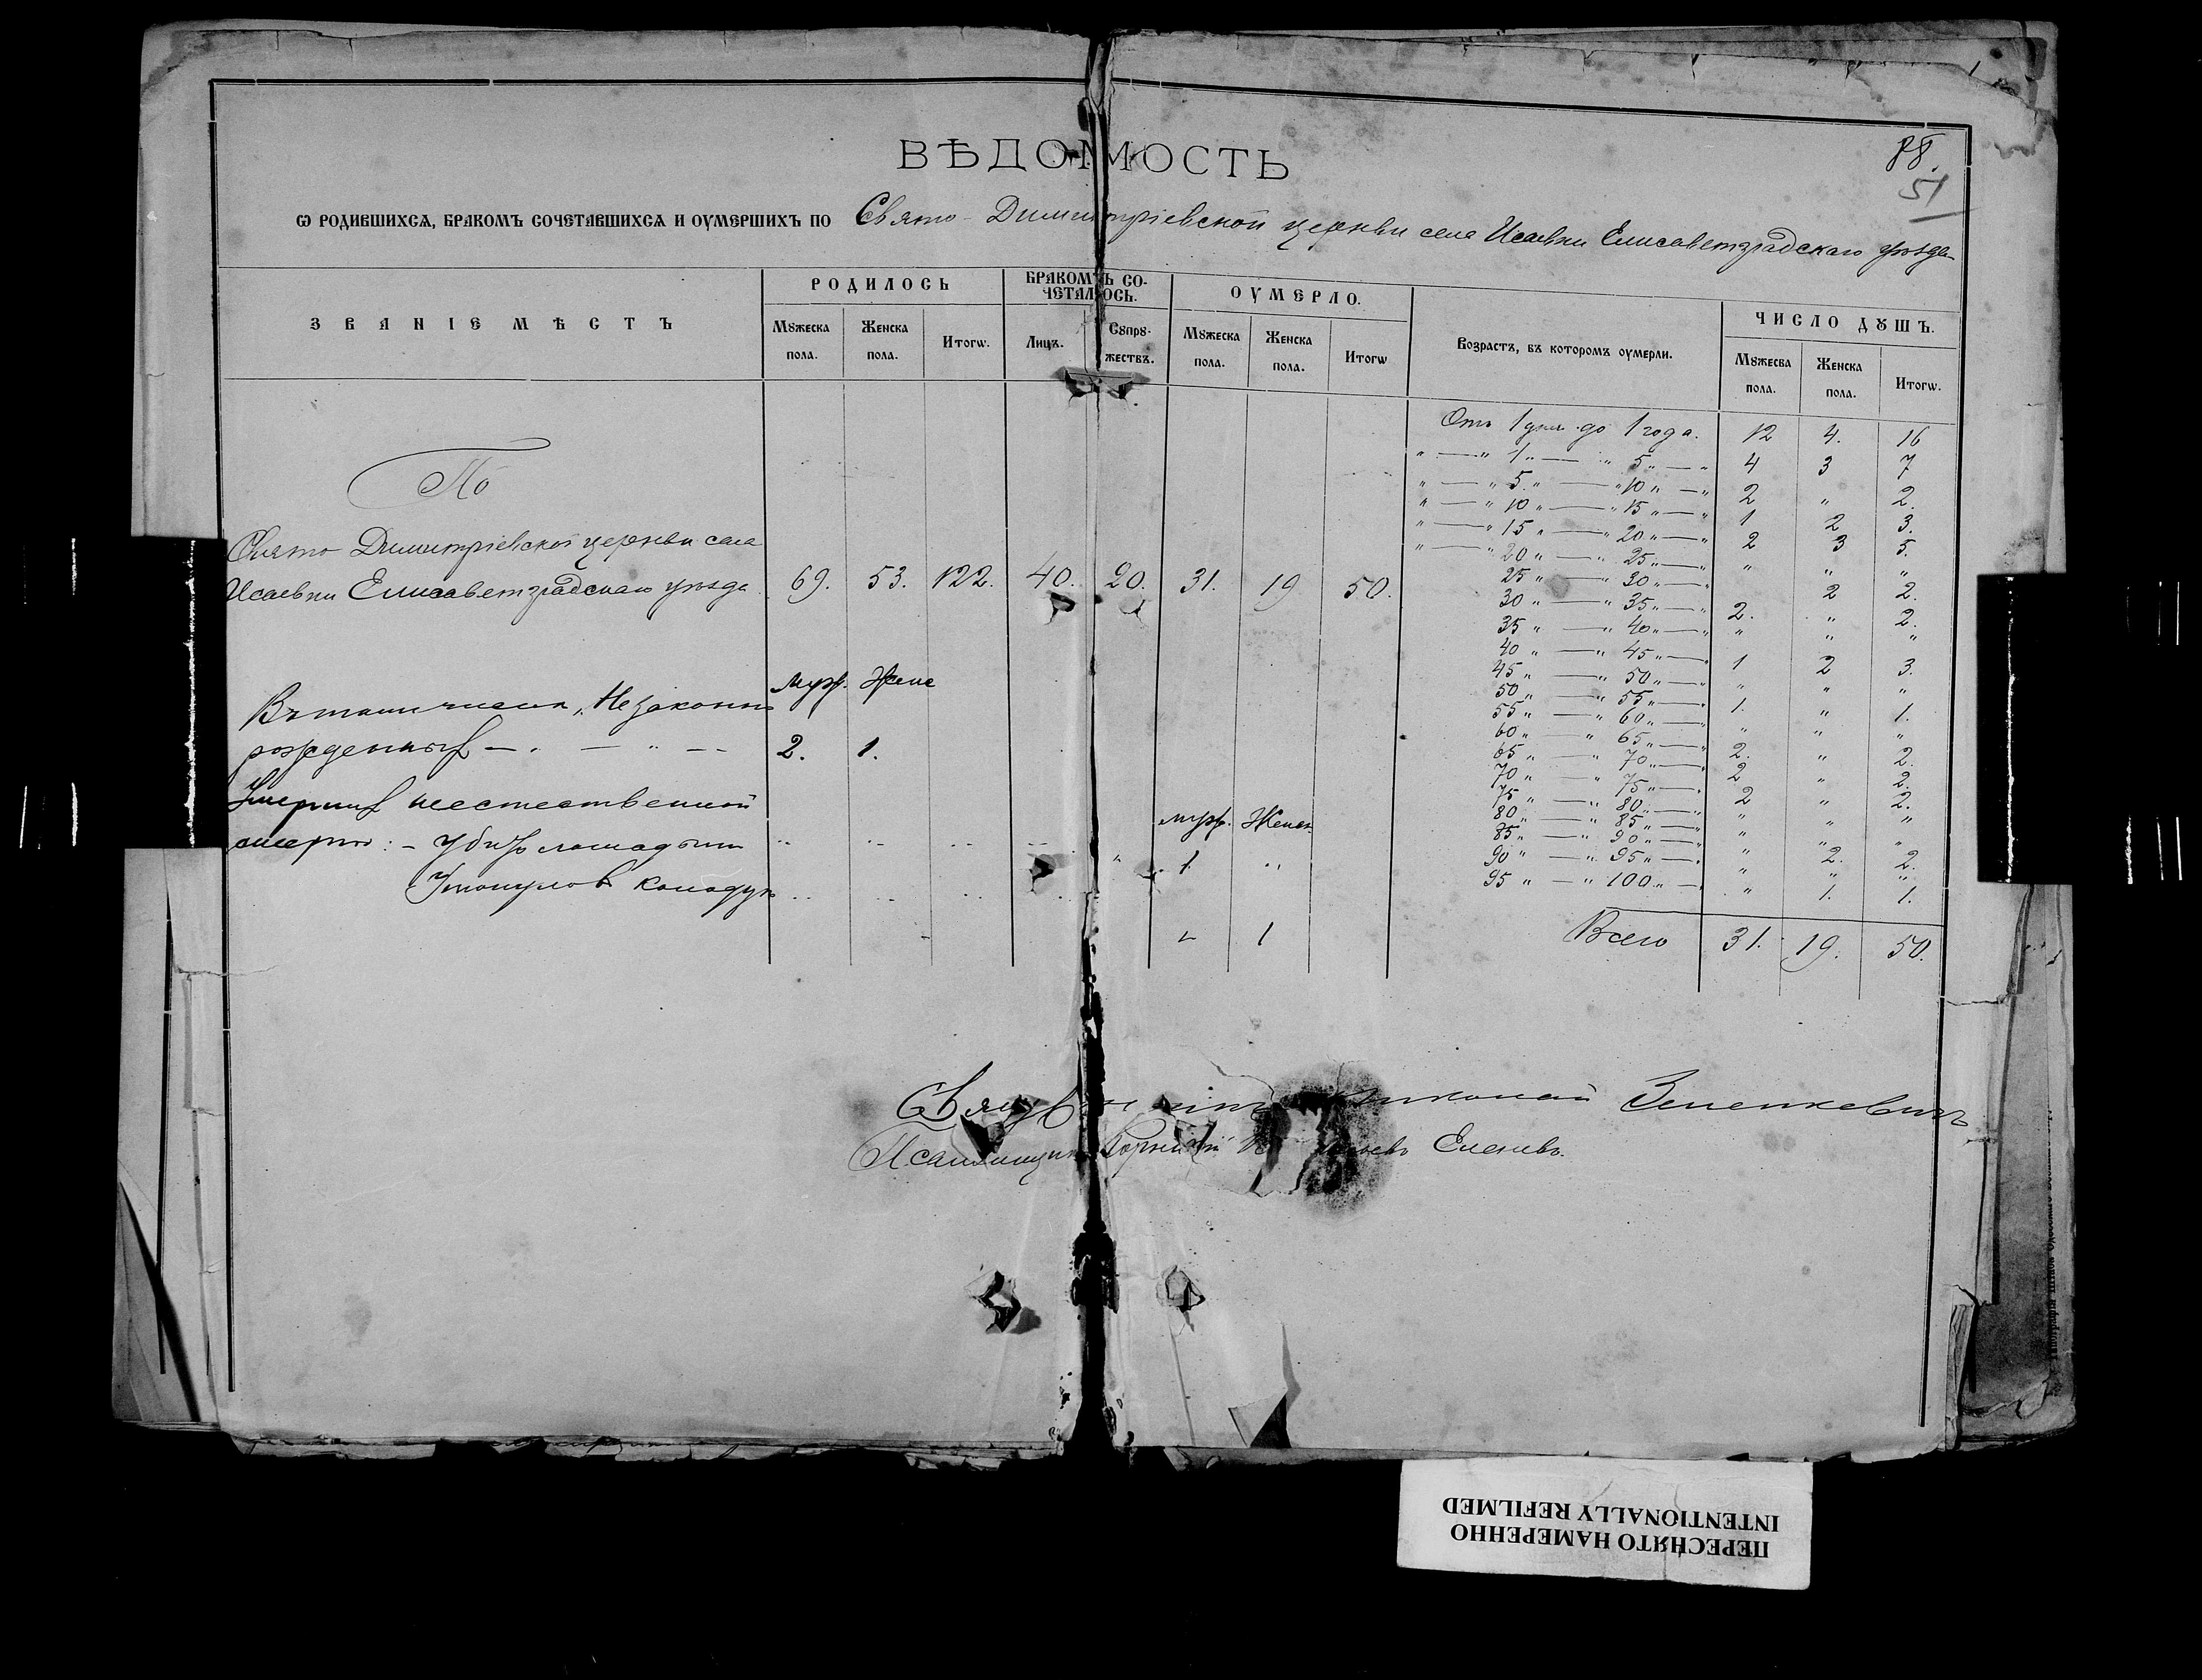 88.
51
ВѢДОМОСТЬ
Ѡ РОДИВШИХСѦ, БРАКОМЪ СОЧЕТАВШИХСѦ И ОУМЕРШИХЪ ПО Свято-Димитріевской церкви села Исаевки Елисаветградскаго уѣзда
ЗВАНІЕ МѢСТЪ
РОДИЛОСЬ
БРАКОМЪ СО-
ЧЕТАЛОСЬ.
ОУМЕРЛО.
Возрастъ, въ которомъ оумерли.
ЧИСЛО ДꙊШЪ.
Мꙋжеска пола.
Женска пола.
Итогѡ.
Лицъ.
Сꙋпрꙋ-
жествъ.
Мꙋжеска пола.
Женска пола.
Итогѡ
Мꙋжесва пола.
Женска пола.
Итогѡ.
По
Свято Димитріевской церкви села
Исаевки Елисаветградскаго уѣзда 69. 53. 122. 40. 20. 31. 19 50.
Отъ 1 дня до 1 года. 12 4. 16
" — " 1 " — " 5 " — " 4 3 7
" — " 5. " — " 10 " — " 2 " 2.
" — " 10 " — " 15 " — " 1 2 3.
" — " 15 " — " 20 " — " 2 3 5.
" — " 20 " — " 25 " — " " " "
25 " — " 30 " — " 2 2.
30 " — " 35 " — " 2. " 2.
35 " — " 40 " — " " " "
40 " — " 45 " — " 1 2 3.
45 " — " 50 " — " " " "
50 " — " 55 " — " 1. " 1.
55 " — " 60 " — " " " "
60 " — " 65 " — " 2. " 2.
65 " — " 70 " — " 2 " 2.
70 " — " 75 " — " 2 " 2.
75 " — " 80 " — " " " "
80 " — " 85 " — " " " "
85 " — " 90 " — " " 2. 2.
90 " — " 95 " — " " " "
95 " — " 100 " — " 1. 1.
Всего 31. 19. 50.
муж. Женс
Въ томъ числѣ, Незаконно
рожденныхъ — " — " — 2. 1.
Умершихъ неестественной
муж. Женск
смертію: - Убитъ лошадьми 1. "
Утонулов колодцѣ
" 1
Священникъ Николай Зеленкевичъ
Псаломщикъ Корнилій
ПЕРЕСНЯТО НАМЕРЕННО
INTENTIONALLY REFILMED